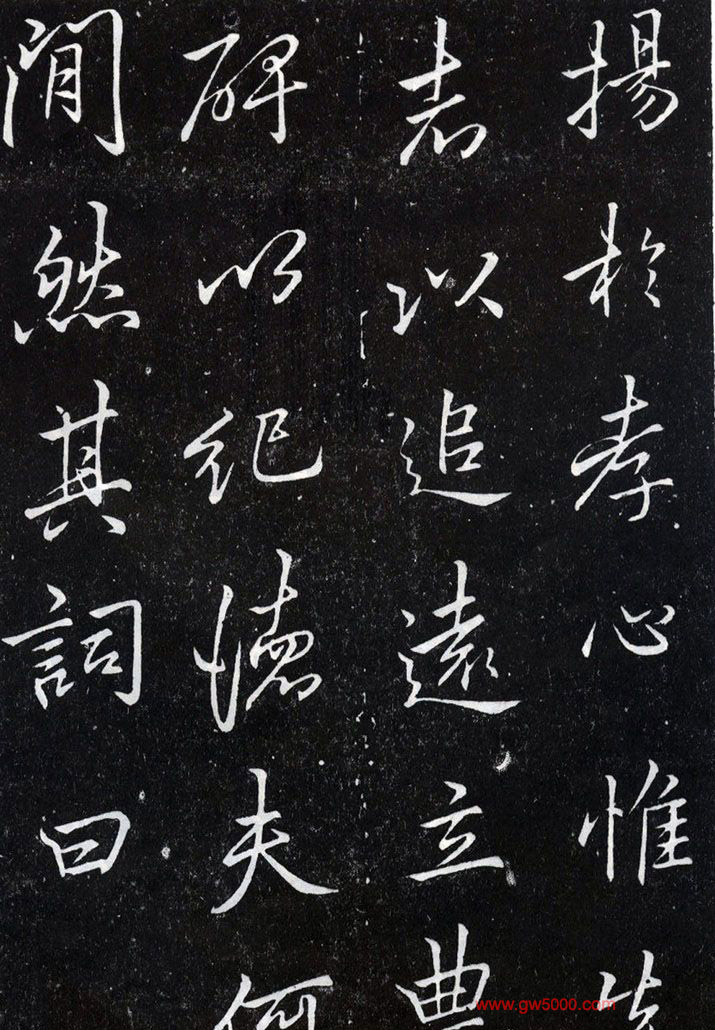 揚於孝心惟
者以追遠立
碑以紀德夫何
閒然其詞曰
www.gw5000.com